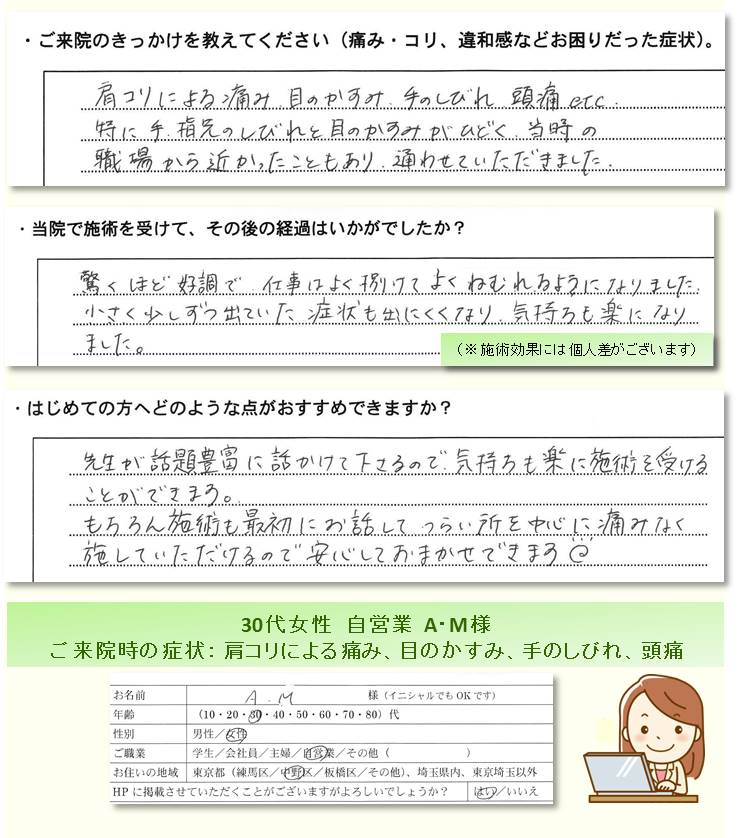 ・ご来院のきっかけを教えてください（痛み・コリ、違和感などお困りだった症状）。
肩コリによる痛み.目のかすみ.手のしびれ 頭痛etc.
特に手.指先のしびれと目のかすみがひどく.当時の
職場から近かったこともあり.通わせていただきました.
・当院で施術を受けて、その後の経過はいかがでしたか？
驚くほど好調で.仕事はよく捗けてよくねむれるようになりました.
小さく少しずつ出ていた症状も出にくくなり.気持ちも楽になり
ました。
（※施術効果には個人差がございます）
・はじめての方へどのような点がおすすめできますか？
先生が話題豊富に話かけて下さるので.気持ちも楽に施術を受ける
ことができます。
もちろん施術も最初にお話してつらい所を中心に痛みなく
施していただけるので安心しておまかせできます
30代女性 自営業 A・M様
ご来院時の症状：肩コリによる痛み、目のかすみ、手のしびれ、頭痛
お名前 A.M 様（イニシャルでもOKです）
年齢 （10・20・30・40・50・60・70・80）代
性別 男性／女性
ご職業 学生／会社員／主婦／自営業／その他（ ）
お住いの地域 東京都（練馬区／中野区／板橋区／その他）、埼玉県内、東京埼玉以外
HPに掲載させていただくことがございますがよろしいでしょうか？ はい／いいえ